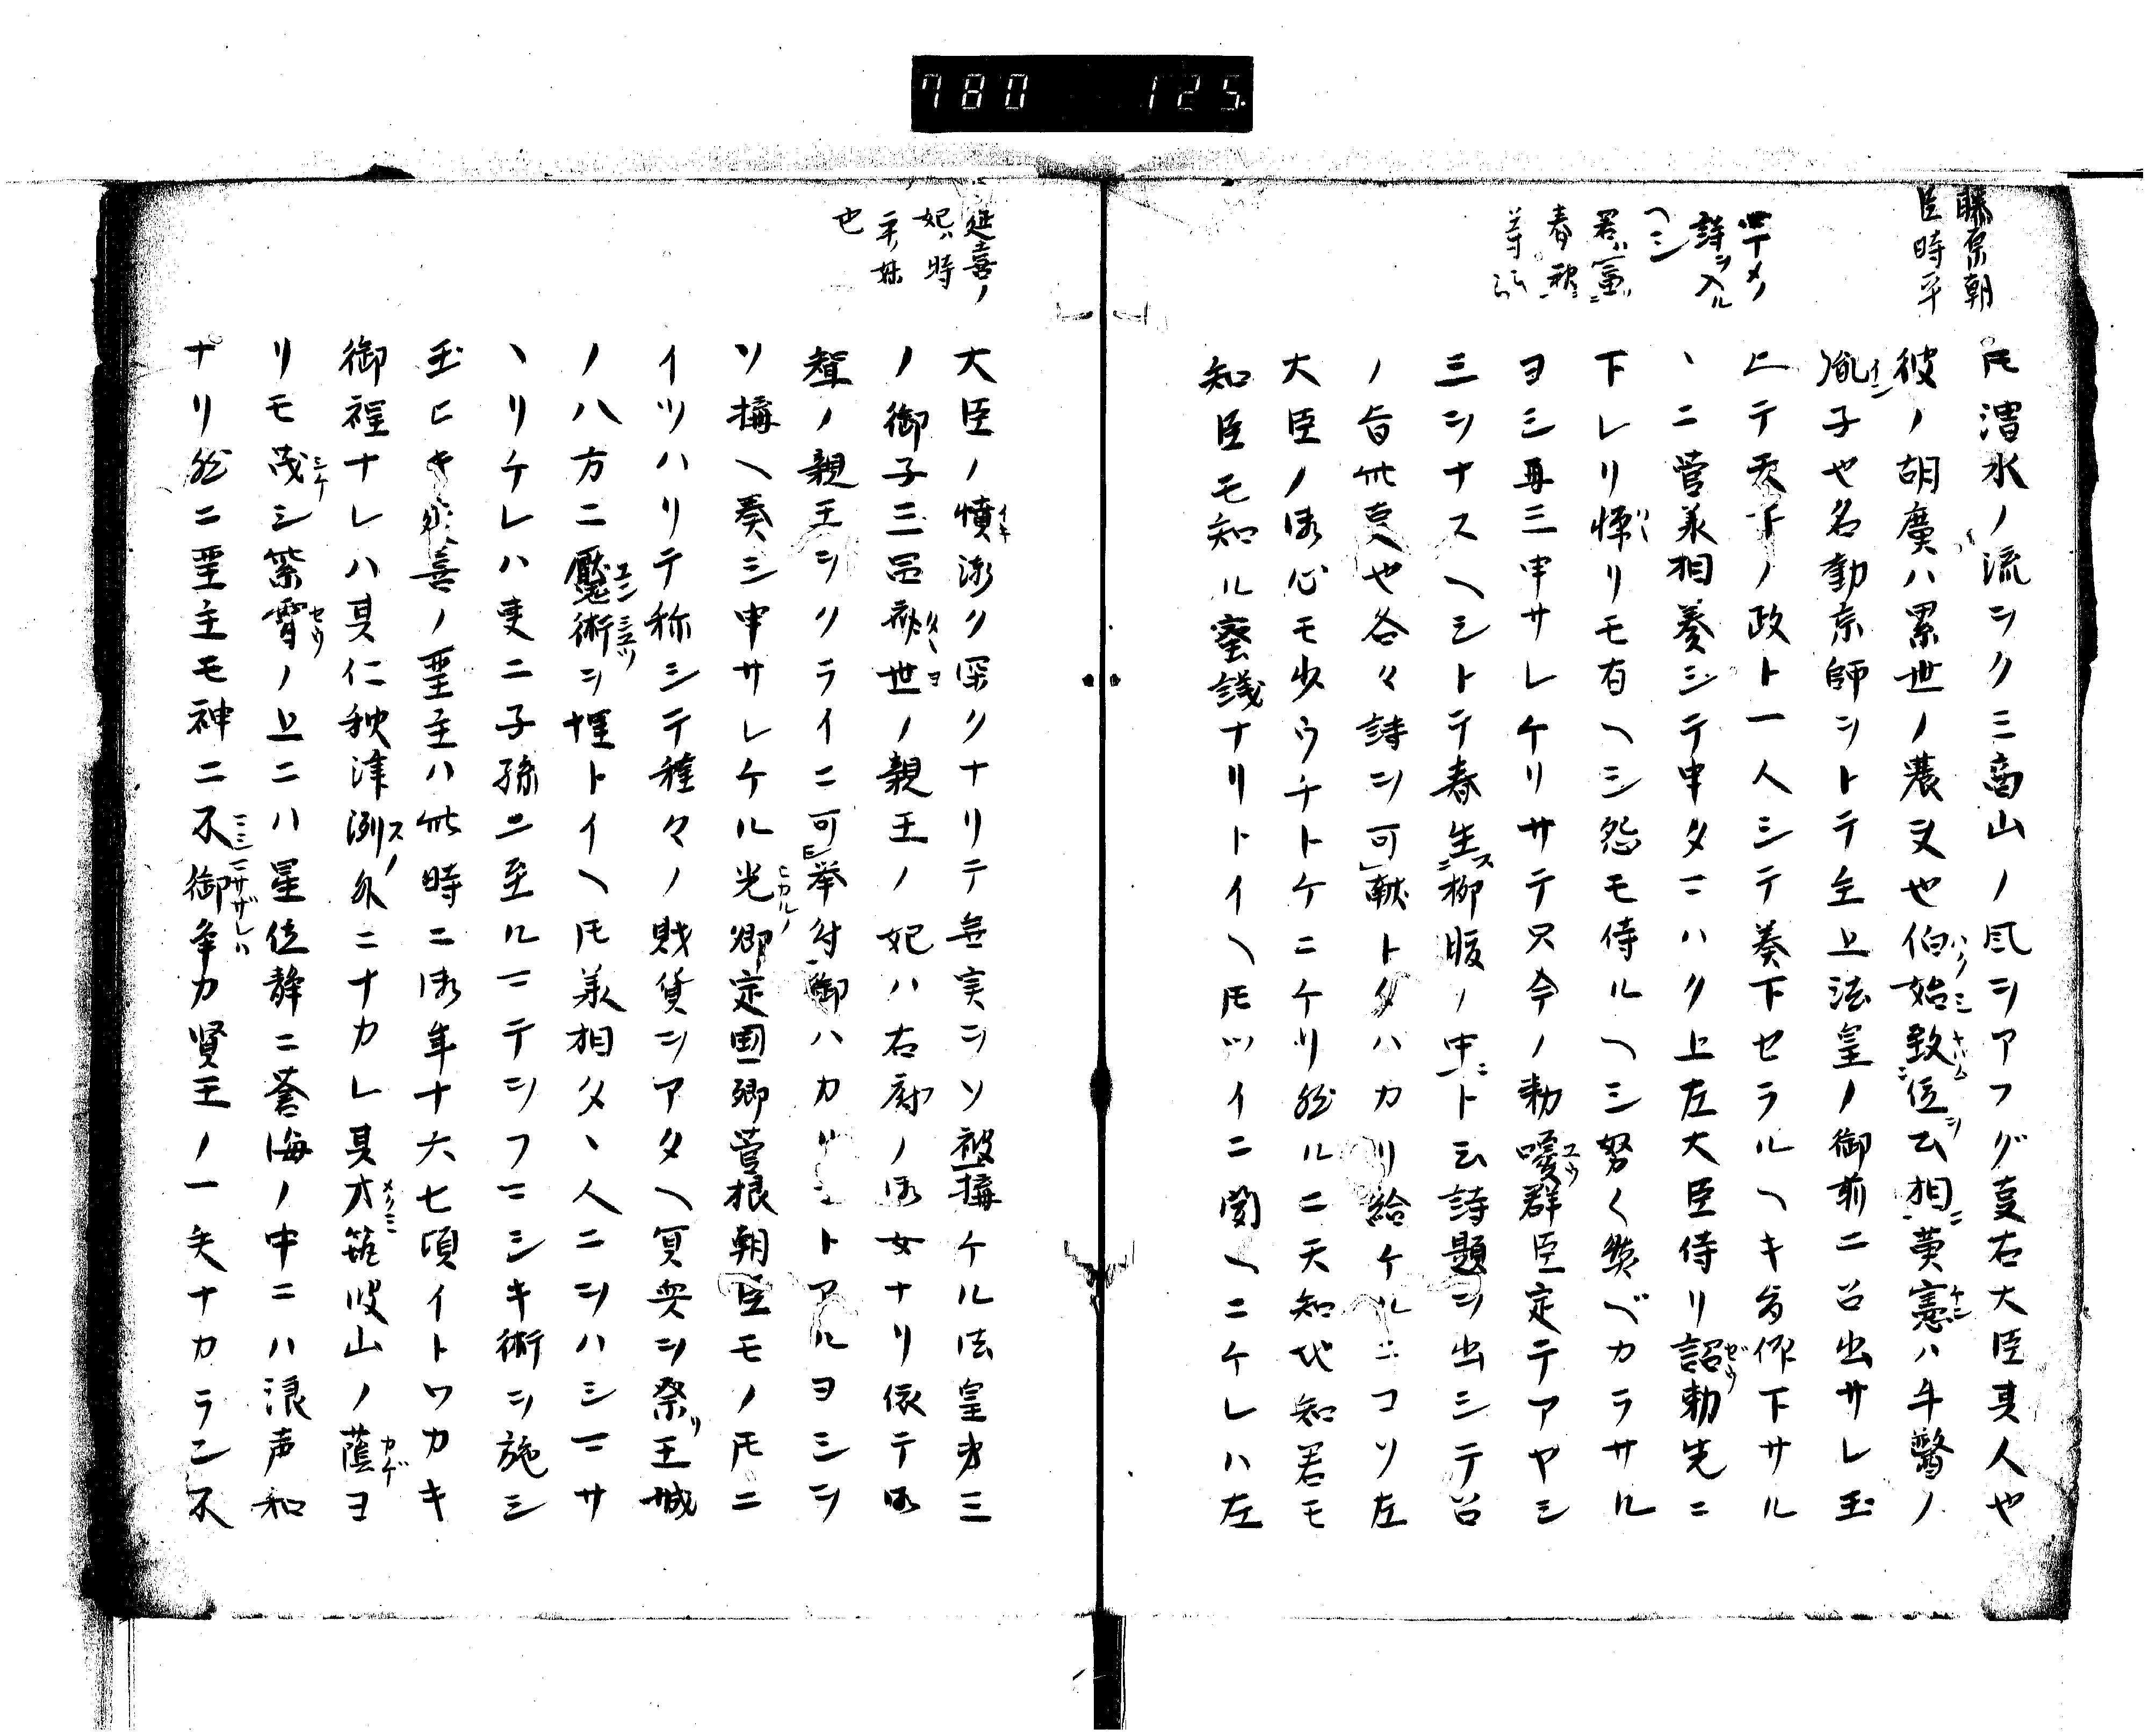 780 125.
藤原朝
臣時平
詩ヲ入ル
ヘシ
春秋
トモ渭水ノ流ヲクミ商山ノ風ヲアフグ夏右大臣其人也
彼ノ胡廣ハ累世ノ農叉也伯始致位ヲ公相ニ黄憲ハ牛醫ノ
胤子也名動京師ヲトテ主上法皇ノ御前ニ召出サレ玉
ヒテ天下ノ政ト一人シテ奏下セラルヘキ旨仰下サル
ヽニ菅丞相奏シテ申タマハク上左大臣侍リ詔勅先ニ
下レリ憚リモ有ヘシ怨モ侍ルヘシ努〱然ベカラサル
ヨシ再三申サレケリサテ只今ノ勅喚群臣定テアヤシ
ミヲナスヘシトテ春生柳眼ノ中ニト云詩題ヲ出シテ召
ノ旨此夏也各々詩ヲ可献トタハカリ給ケルニコソ左
大臣ノ御心モ少ウチトケニケリ然ルニ天知地知君モ
知臣モ知ル蜜議ナリトイヘトモツイニ聞ヘニケレハ左
延喜ノ
妃ハ時
平ノ妹
也
大臣ノ憤深ク深クナリテ無実ヲソ被搆ケル法皇第三
ノ御子三品 世ノ親王ノ妃ハ右府ノ御女ナリ依テ御
聟ノ親王ヲクライニ可挙付御ハカリコトアルヨシヲ
ソ搆ヘ奏シ申サレケル光卿定国卿菅根朝臣モノトモニ
イツハリテ称シテ種々ノ財貨ヲアタヘ冥衆ヲ祭リ王城
ノ八方ニ壓術ヲ埋トイヘトモ丞相タヽ人ニヲハシマサ
ヽリケレハ更ニ子孫ニ至ルマテヲフマシキ術ヲ施シ
玉ヒキ延喜ノ聖主ハ此時ニ御年十六七頃イトワカキ
御程ナレハ其仁秋津洲ノ外ニナカレ其 筑波山ノ蔭ヨ
リモ茂シ紫霄ノ上ニハ星位静ニ蒼海ノ中ニハ浪声和
ナリ然ニ聖主モ神ニ不御争カ賢王ノ一失ナカラン不